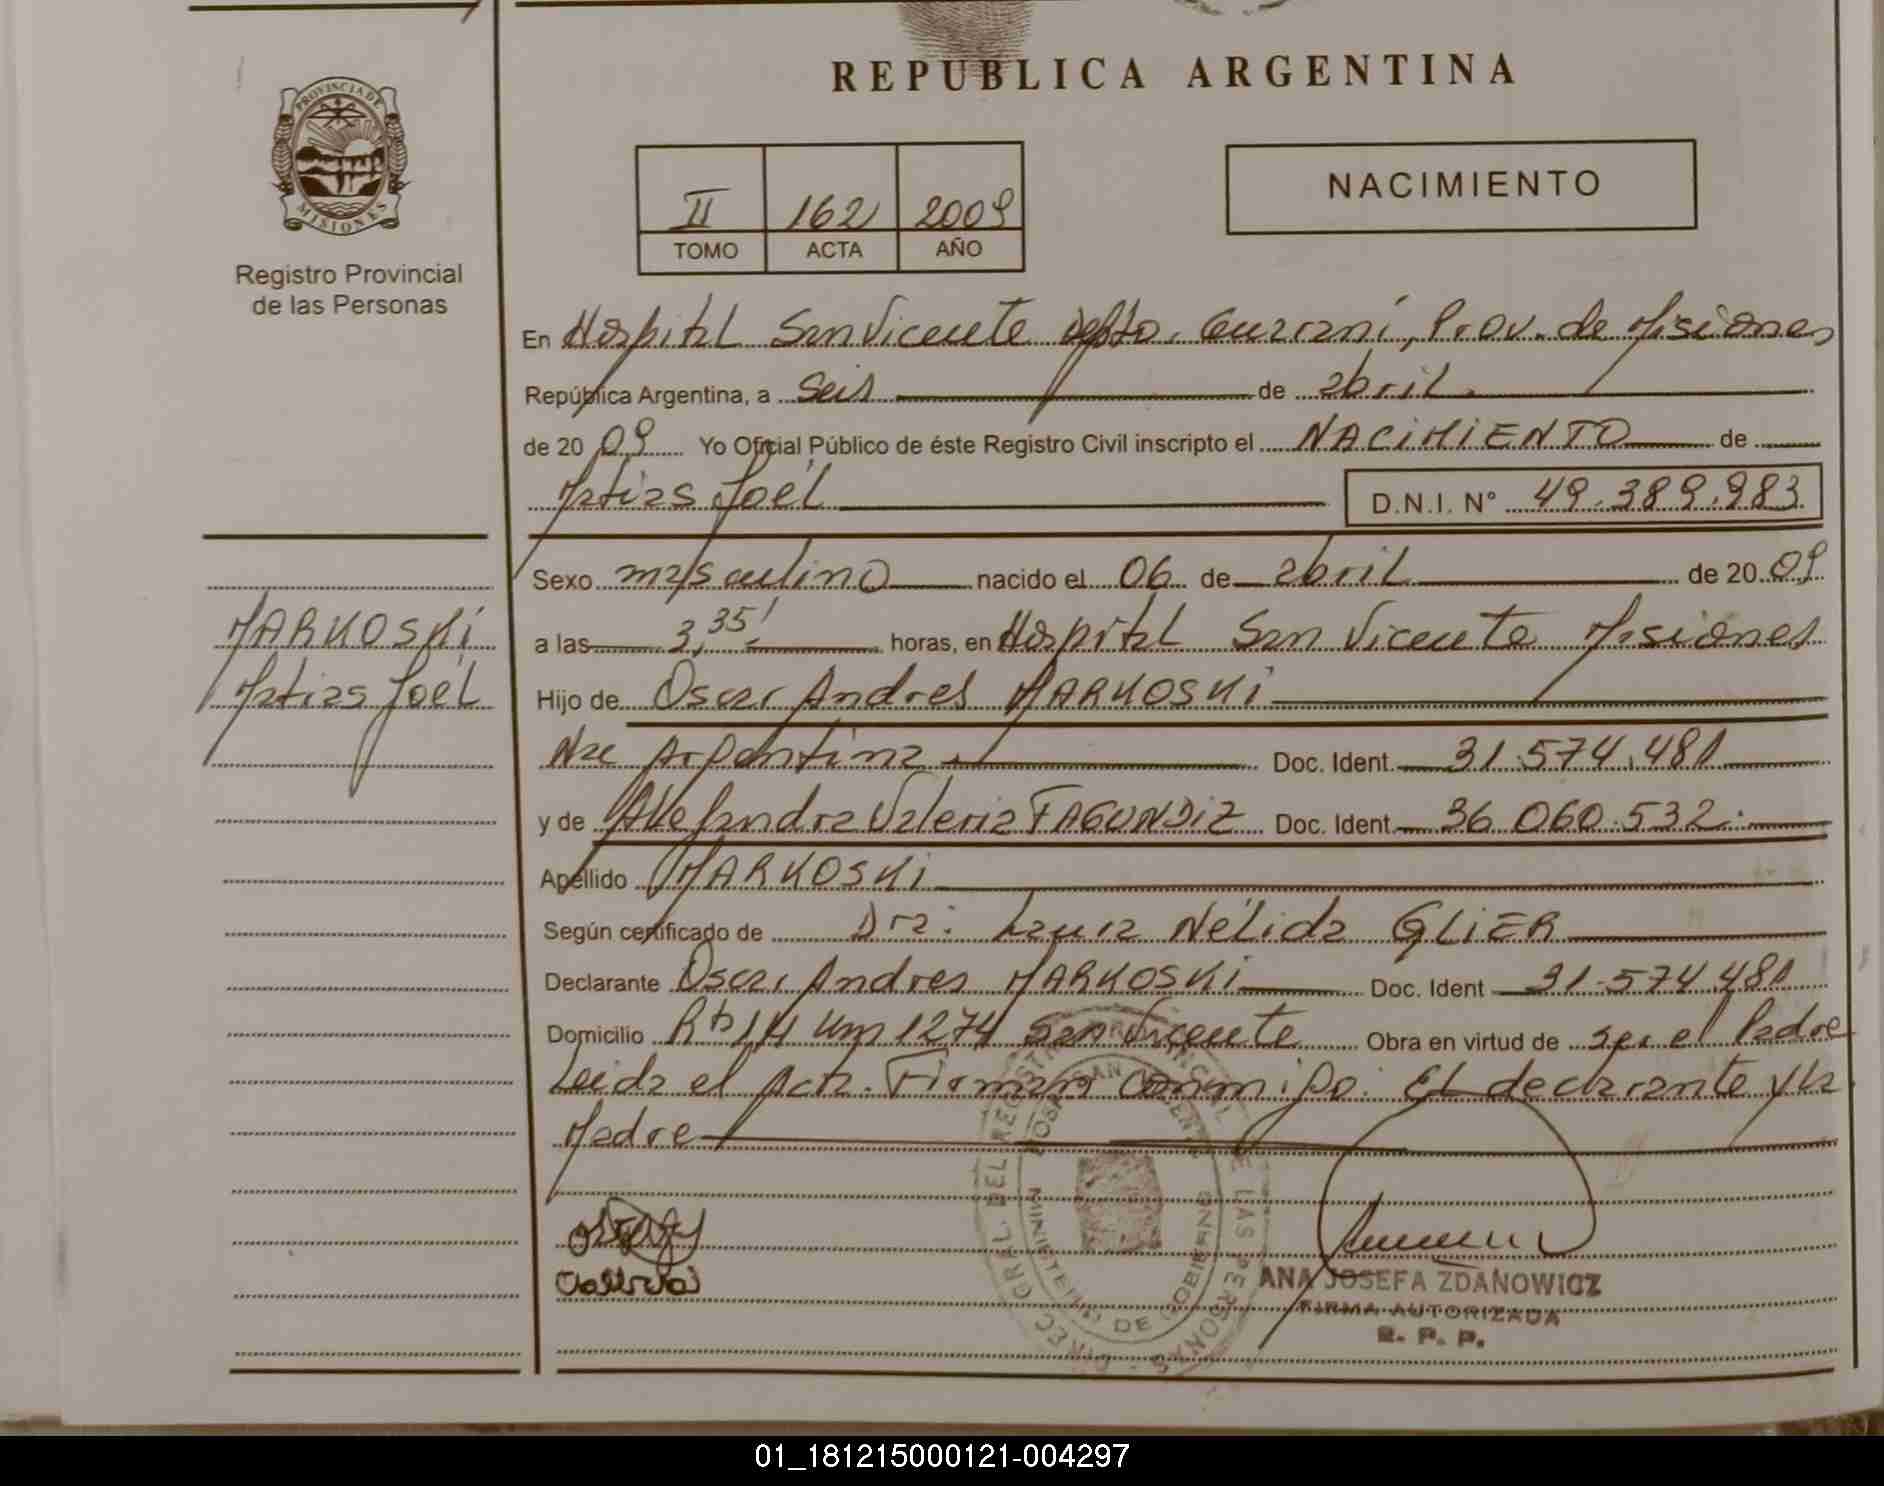 REPUBLICA ARGENTINA
PROVINCIA DE MISIONES
Registro Provincial
de las Personas
II 162 2009
TOMO ACTA AÑO
NACIMIENTO
En Hospital San Vicente Depto. Guaraní, Prov. de Misiones
República Argentina, a seis de abril
de 2009 Yo Oficial Público de éste Registro Civil inscripto el NACIMIENTO de
Matias Joel D.N.I. N° 49.389.983
Sexo masculino nacido el 06 de abril de 2009
MARKOSKI
a las 3,35' horas, en Hospital San Vicente Misiones
Matias Joel
Hijo de Oscar Andres MARKOSKI
Nac Argentina Doc. Ident. 31.574.481
y de Alejandra Valeria FAGUNDIZ Doc. Ident. 36.060.532.
Apellido MARKOSKI
Según certificado de Dra. Laura Nélida GLIER
Declarante Oscar Andres MARKOSKI Doc. Ident 31.574.481
Domicilio Rta 14 Km 1274 San Vicente Obra en virtud de ser el Padre
Leida el Acta. Firman conmigo. El declarante y la
Madre
Valeria
DIREC. GRAL. DEL REGISTRO PROVINCIAL DE LAS PERSONAS
HOSP. SAN VICENTE
MINISTERIO DE GOBIERNO
ANA JOSEFA ZDANOWICZ
FIRMA AUTORIZADA
R. P. P.
01_181215000121-004297